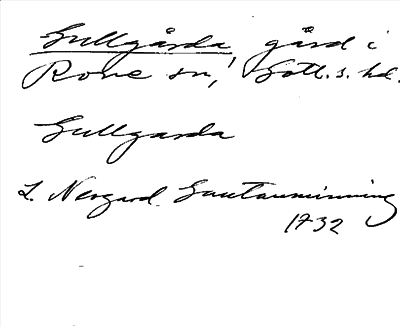 Gullgårda, gård i
Rone sn, Gotl. s. hd.
Gullgarda
L. Nergard. Gautauminning
1732